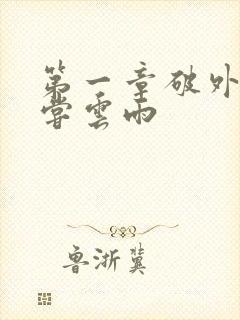 第一章破外
嘗雲雨
鲁浙冀